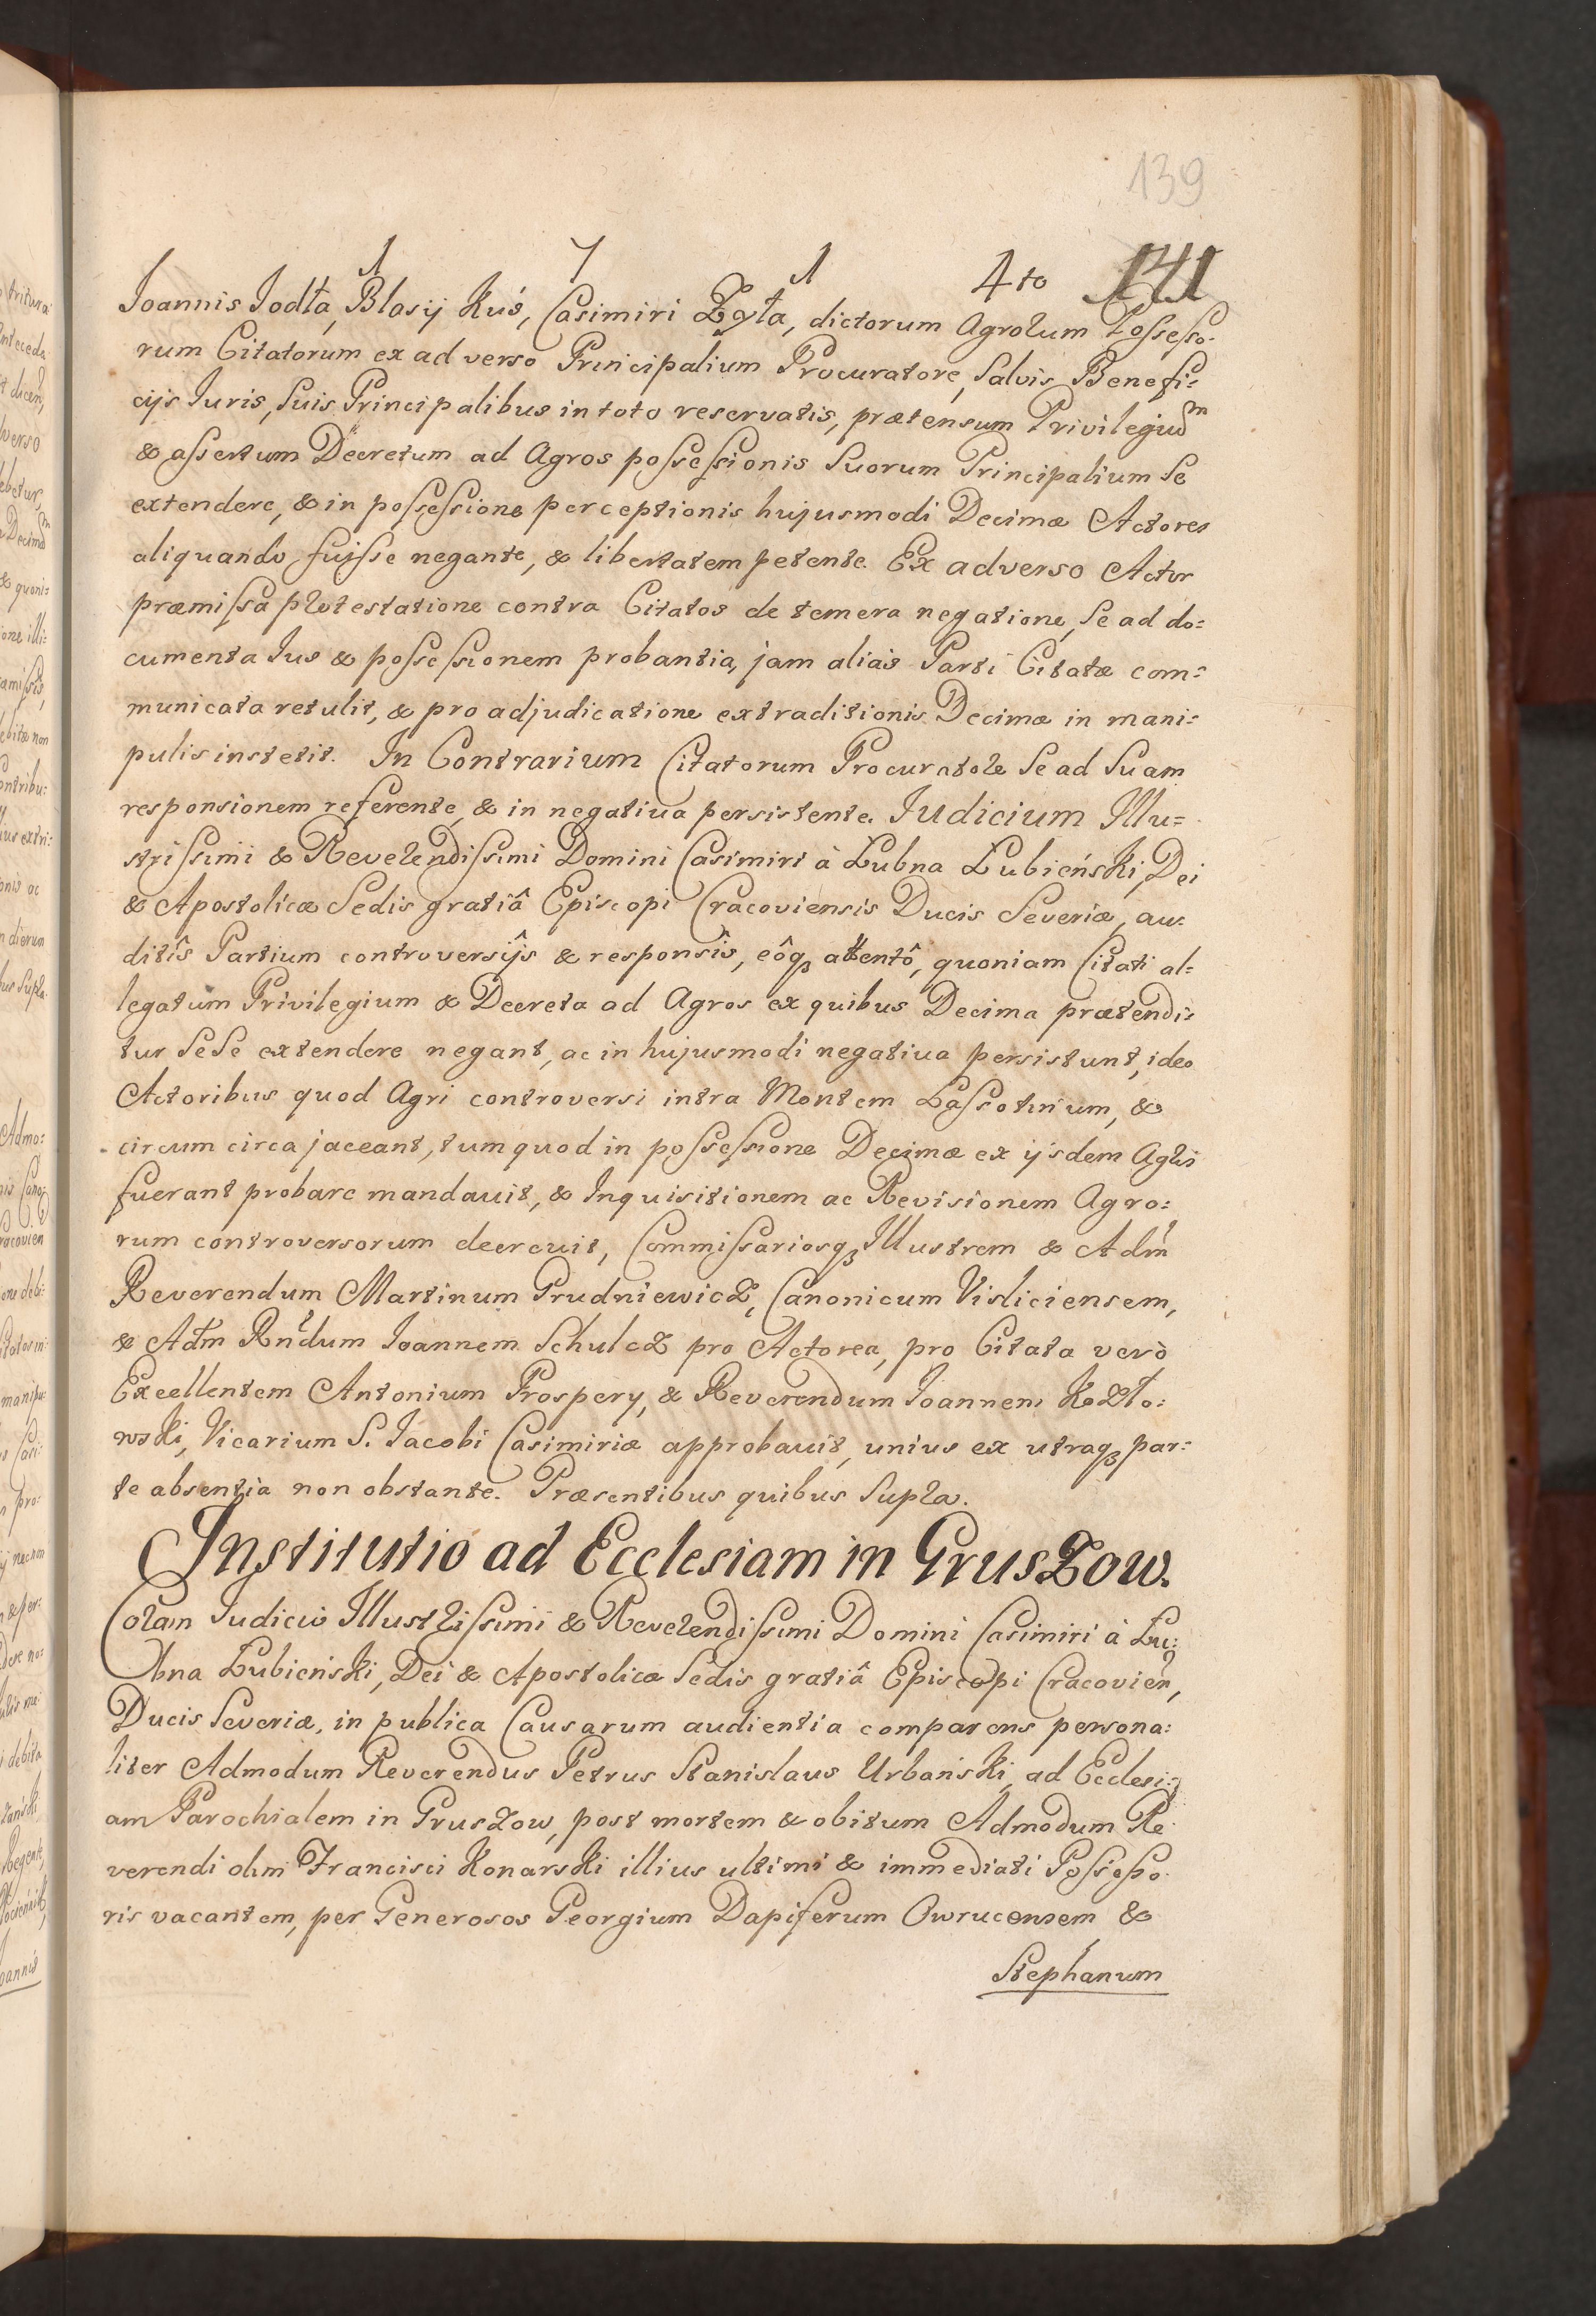 139
1 7 1 4to 141
Joannis Jodła, Blasij Kuś, Casimiri Zyła, dictorum Agrorum Possesso-
rum Citatorum ex adverso Principalium Procuratore, Salvis Benefi:
cijs Iuris, Suis Principalibus in toto reservatis, prætensum Privilegiu͠m
& assertum Decretum ad Agros possessionis Suorum Principalium Se
extendere, & in possessione perceptionis hujusmodi Decimæ Actores
aliquando fuisse negante, & libertatem petente. Ex adverso Actor
præmissa protestatione contra Citatos de temera negatione, Se ad do:
cumenta Ius & possessionem probantia, jam aliàs Parti Citatæ com:
municata retulit, & pro adjudicatione extraditionis Decimæ in mani:
pulis institit. In Contrarium Citatorum Procuratore Se ad Suam
responsionem referente, & in negativa persistente. Judicium Illu=
strissimi & Reverendissimi Domini Casimiri à Łubna Łubieński, Dei
& Apostolicæ Sedis gratiâ Episcopi Cracoviensis Ducis Severiæ, au:
ditîs Partium controversijs & responsîs, eôq; attentô, quoniam Citati al=
legatum Privilegium & Decreta ad Agros ex quibus Decima prætendi:
tur SeSe extendere negant, ac in hujusmodi negativa persistunt, ideo
Actoribus quod Agri controversi intra Montem Lassotinium, &
circum circa jaceant, tum quod in possessione Decimæ ex ijsdem Agris
fuerant probare mandavit, & Inquisitionem ac Revisionem Agro:
rum controversorum decrevit, Commissariosq; Illustrem & Adm̃
Reverendum Martinum Prudniewicz, Canonicum Visliciensem,
& Adm̃ Rńdum Joannem Schulcz pro Actorea, pro Citata verò
Excellentem Antonium Prospery, & Reverendum Joannem Kozło:
wski, Vicarium S. Jacobi Casimiriæ approbavit, unius ex utraq; par:
te absentia non obstante. Præsentibus quibus Supra.
Institutio ad Ecclesiam in Gruszow.
Coram Judicio Illustrissimi & Reverendissimi Domini Casimiri à Łu:
bna Łubieński, Dei & Apostolicæ Sedis gratiâ Episcopi Cracovień,
Ducis Severiæ, in publica Causarum audientia comparens persona:
liter Admodum Reverendus Petrus Stanislaus Urbański, ad Ecclesi:
am Parochialem in Gruszow, post mortem & obitum Admodum Re
verendi olim Francisci Konarski illius ultimi & immediati Possesso
ris vacantem, per Generosos Georgium Dapiferum Owrucensem &
Stephanum